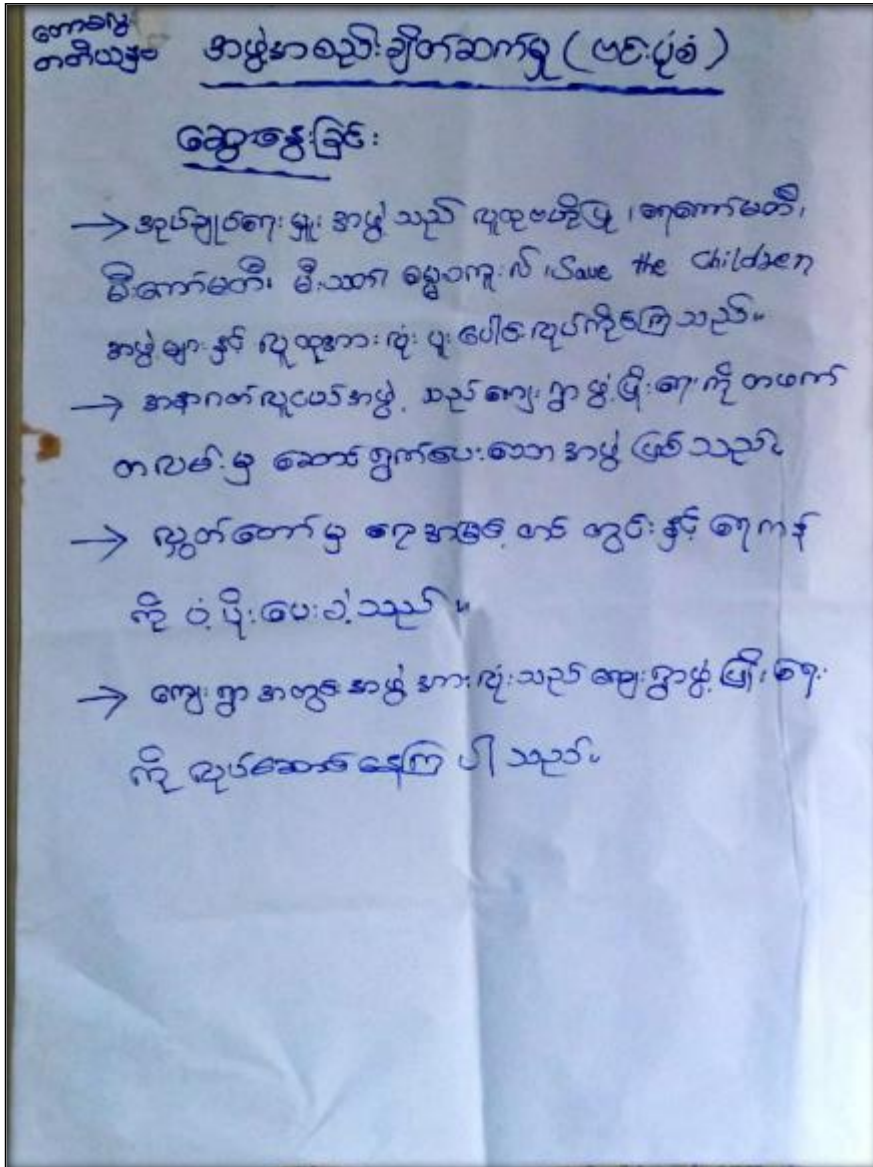 တောခလွ
တတိယနှစ် အဖွဲ့အစည်းချိတ်ဆက်မှု (ဗင်းပုံစံ)
ဆွေးနွေးခြင်း
→ အုပ်ချုပ်ရေးမှူးအဖွဲ့သည် လူထုဗဟိုပြု၊ ရေကော်မတီ၊
မီးကော်မတီ၊ မီးသတ်၊ ဓမ္မစကူးလ်၊ Save the Children
အဖွဲ့များနှင့် လူထုအားလုံး ပူးပေါင်းလုပ်ကိုင်ကြသည်။
→ အနာဂတ်လူငယ်အဖွဲ့သည် ကျေးရွာဖွံ့ဖြိုးရေးကို တဖက်
တလမ်းမှ ဆောင်ရွက်ပေးသော အဖွဲ့ဖြစ်သည်။
→ လွှတ်တော်မှ ရေအမြင့်တင် တွင်းနှင့် ရေကန်
ကို ပံ့ပိုးပေးခဲ့သည်။
→ ကျေးရွာအတွင်းအဖွဲ့အားလုံးသည် ကျေးရွာဖွံ့ဖြိုးရေး
ကို လုပ်ဆောင်နေကြပါသည်။